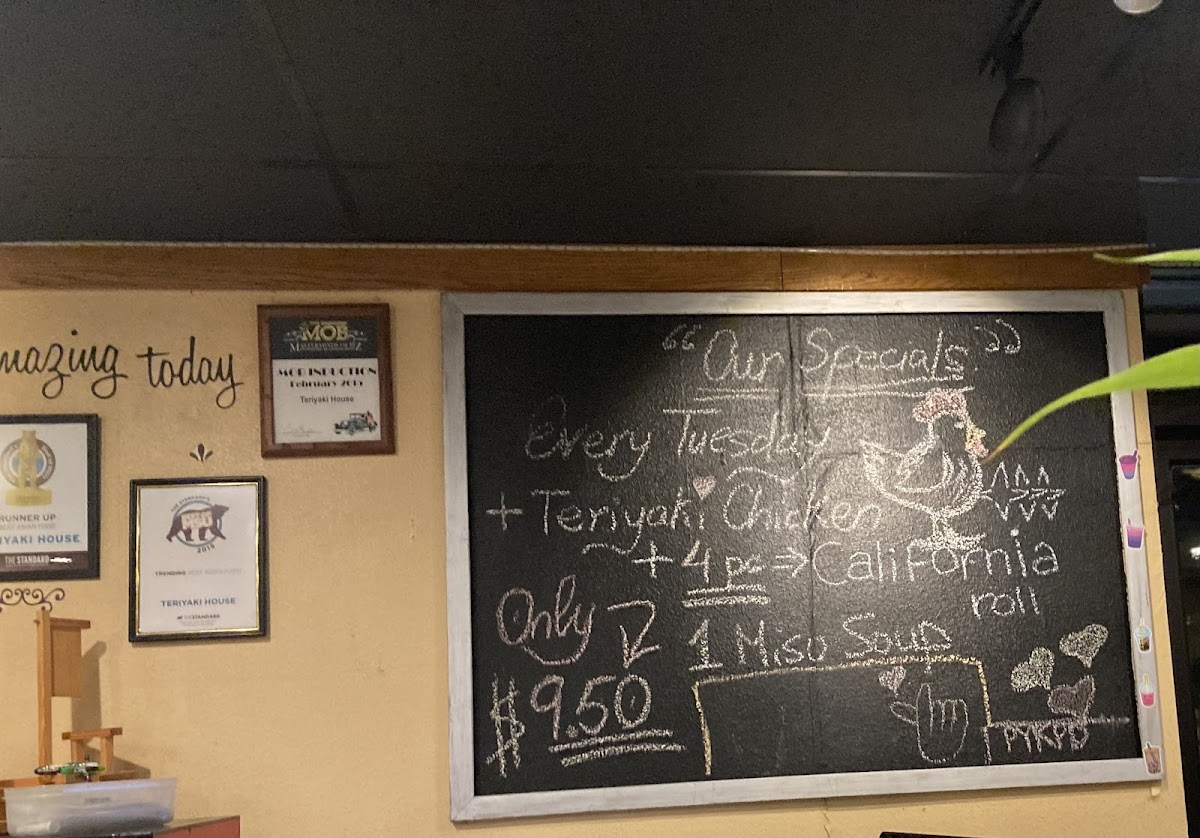 mazing today
MOB
MOB INDUCTION
February 2015
Teriyaki House
RUNNER UP
BEST ASIAN FOOD
IYAKI HOUSE
THE STANDARD
THE STANDARD'S
2015
TRENDING BEST ASIAN FOOD
TERIYAKI HOUSE
THE STANDARD
"Our Specials"
Every Tuesday
+ Teriyaki Chicken
+ 4 pc ⇒ California
roll
1 Miso Soup
Only
$9.50